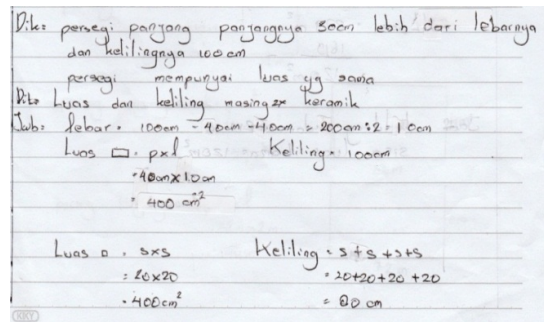 Dik = persegi panjang panjangnya 30cm lebih dari lebarnya
dan kelilingnya 100 cm
persegi mempunyai luas yg sama
Dit = Luas dan keliling masing2x keramik
Jwb = lebar = 100cm - 40cm - 40cm = 200cm : 2 = 10cm
Luas ▭ = pxl Keliling = 100cm
= 40cm x 10cm
= 400 cm²
Luas □ = sxs Keliling = s + s + s + s
= 20x20 = 20+20+20+20
= 400cm² = 80 cm